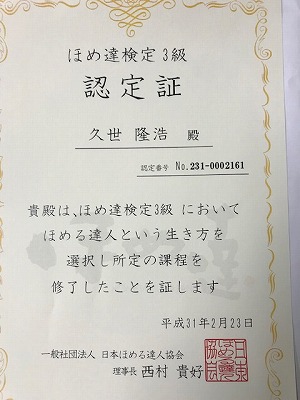 ほめ達検定3級
認定証
久世 隆浩 殿
認定番号 No.231-0002161
貴殿は、ほめ達検定3級 において
ほめる達人という生き方を
選択し所定の課程を
修了したことを証します
平成31年2月23日
一般社団法人 日本ほめる達人協会
理事長 西村 貴好